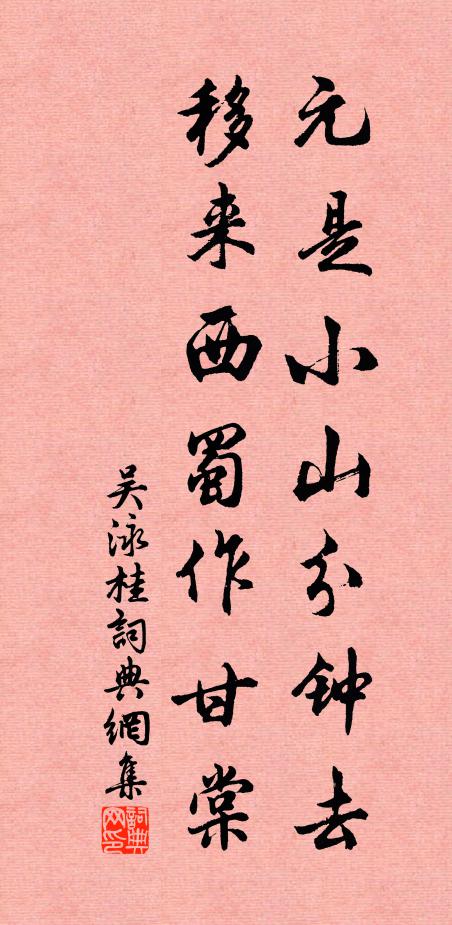 元是小山分钟去
移来西蜀作甘棠
吴泳桂詞典網集
詞典网印